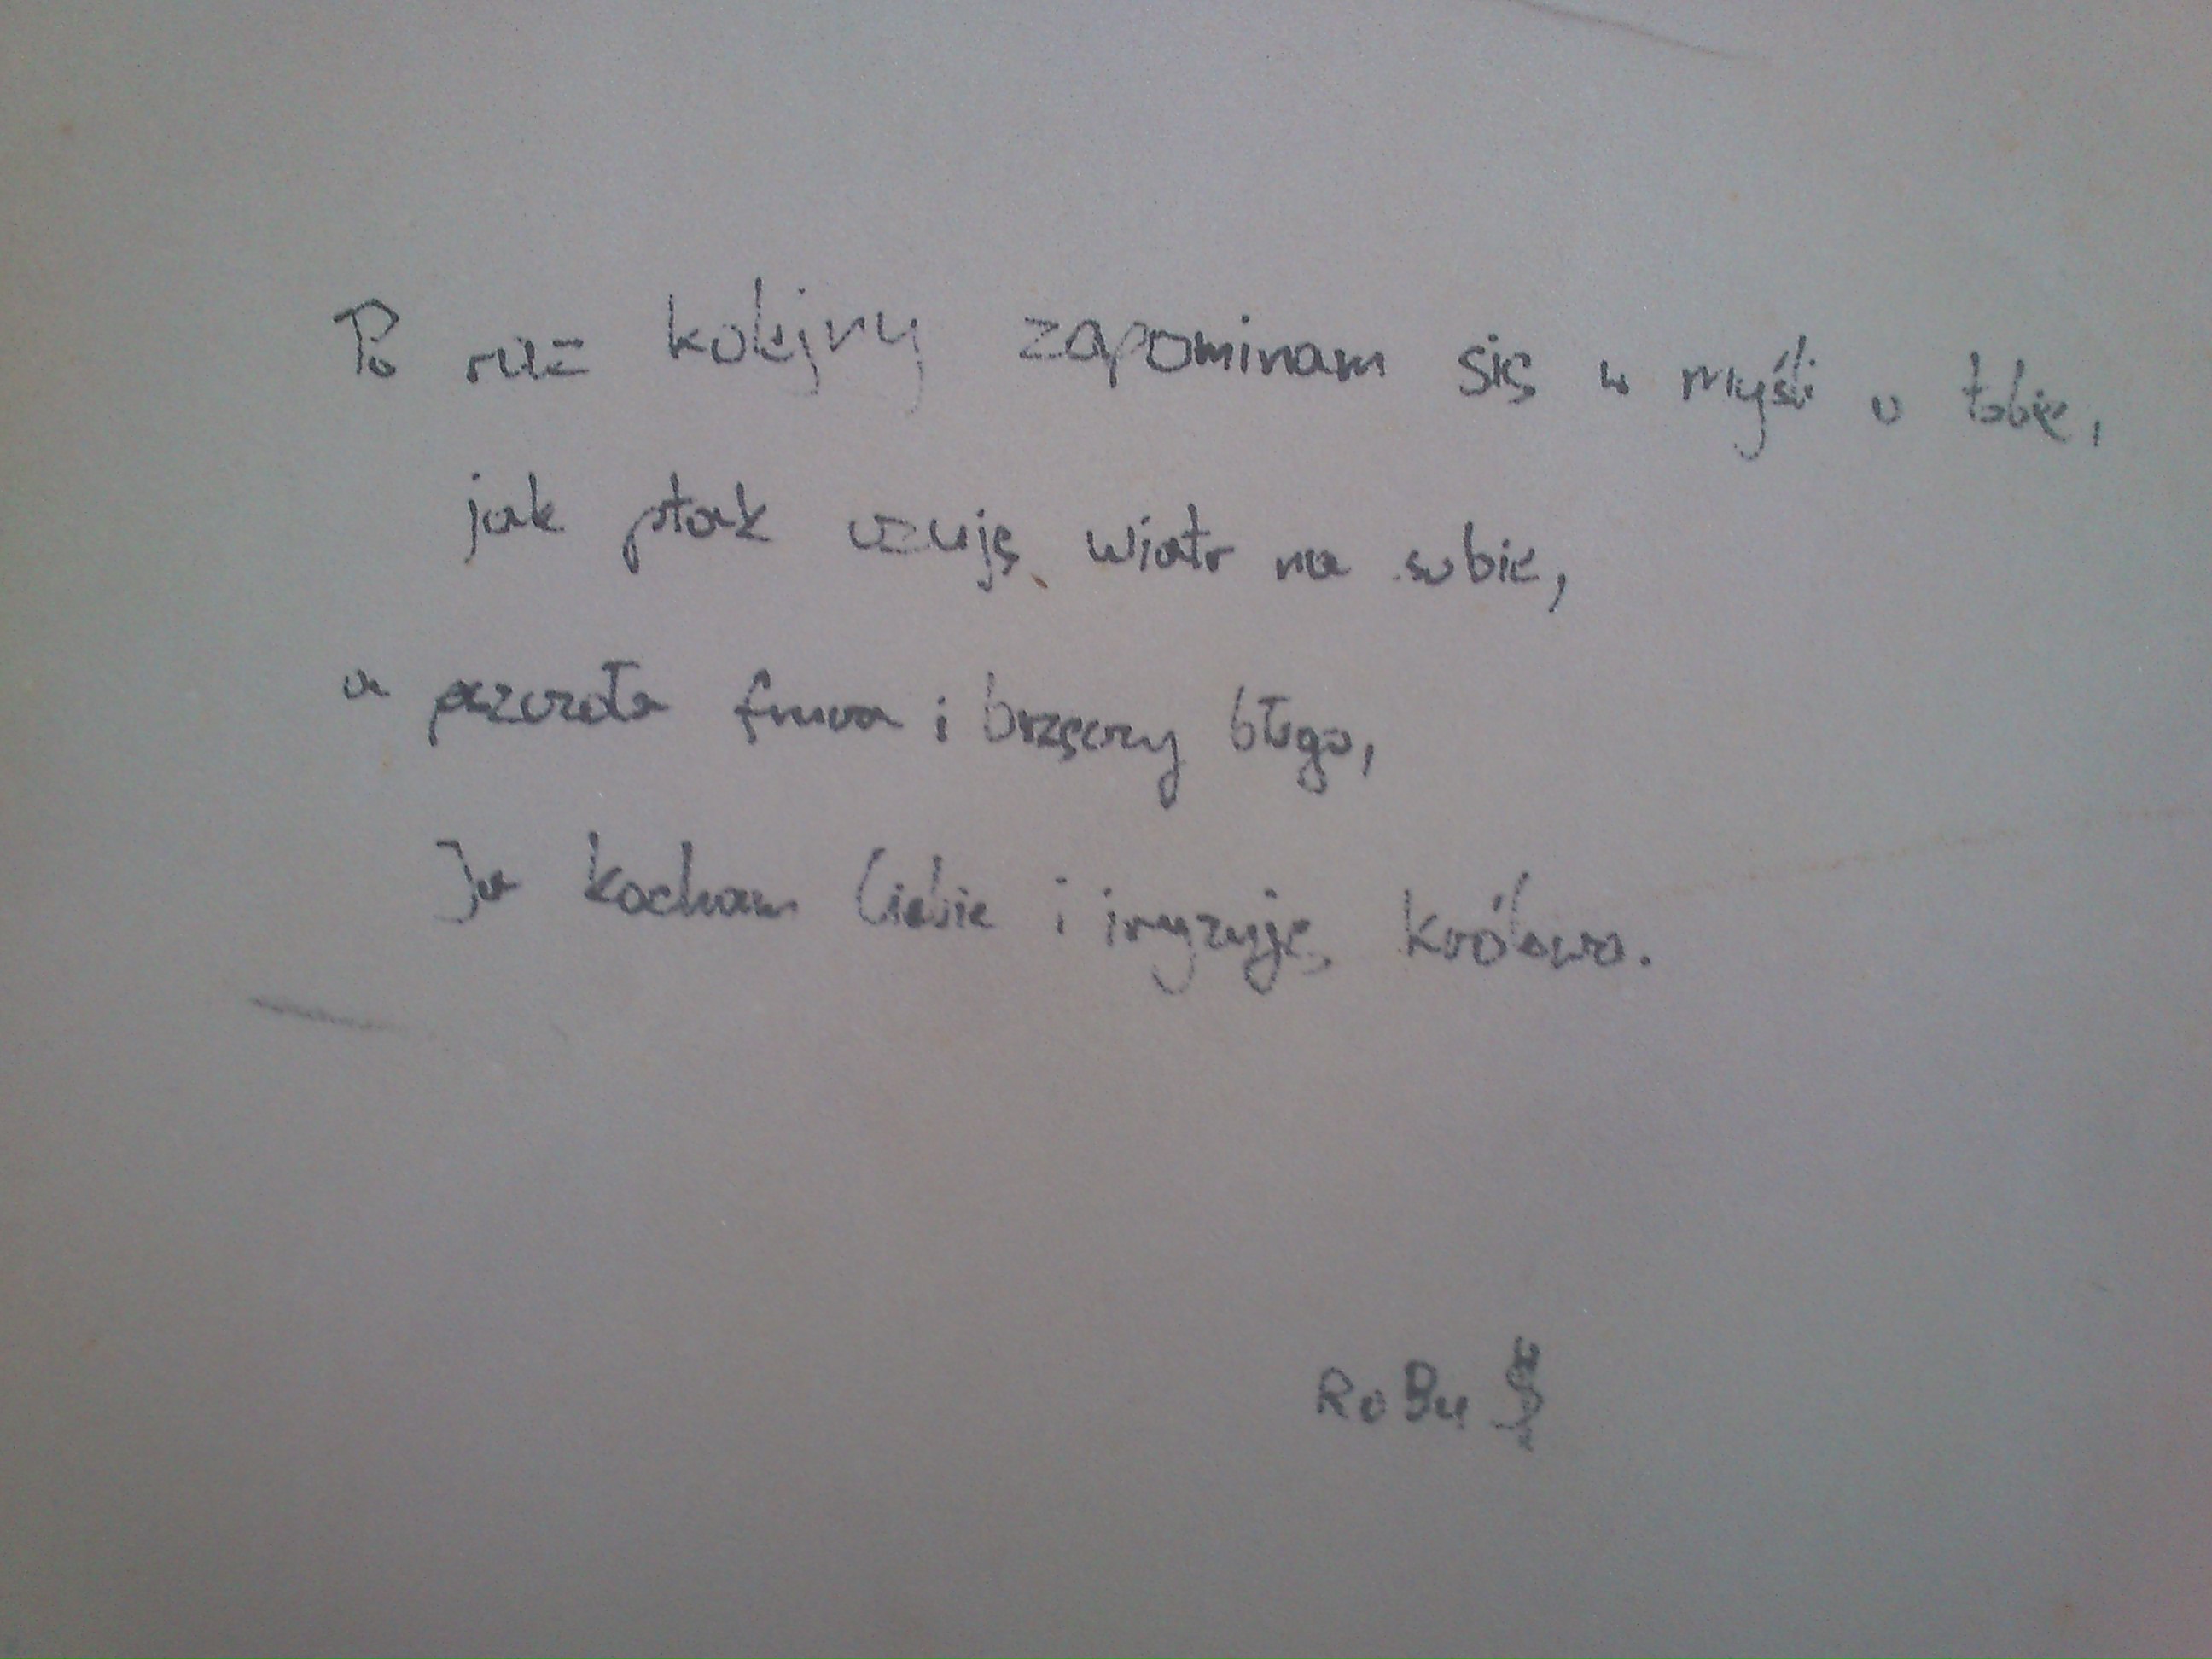 Po raz kolejny zapominam się w myśli o tobie,
jak ptak czuję wiatr na sobie,
a pszczoła fruwa i brzęczy błogo,
Ja kocham Ciebie i iryzuję, królowo.
RoBu$